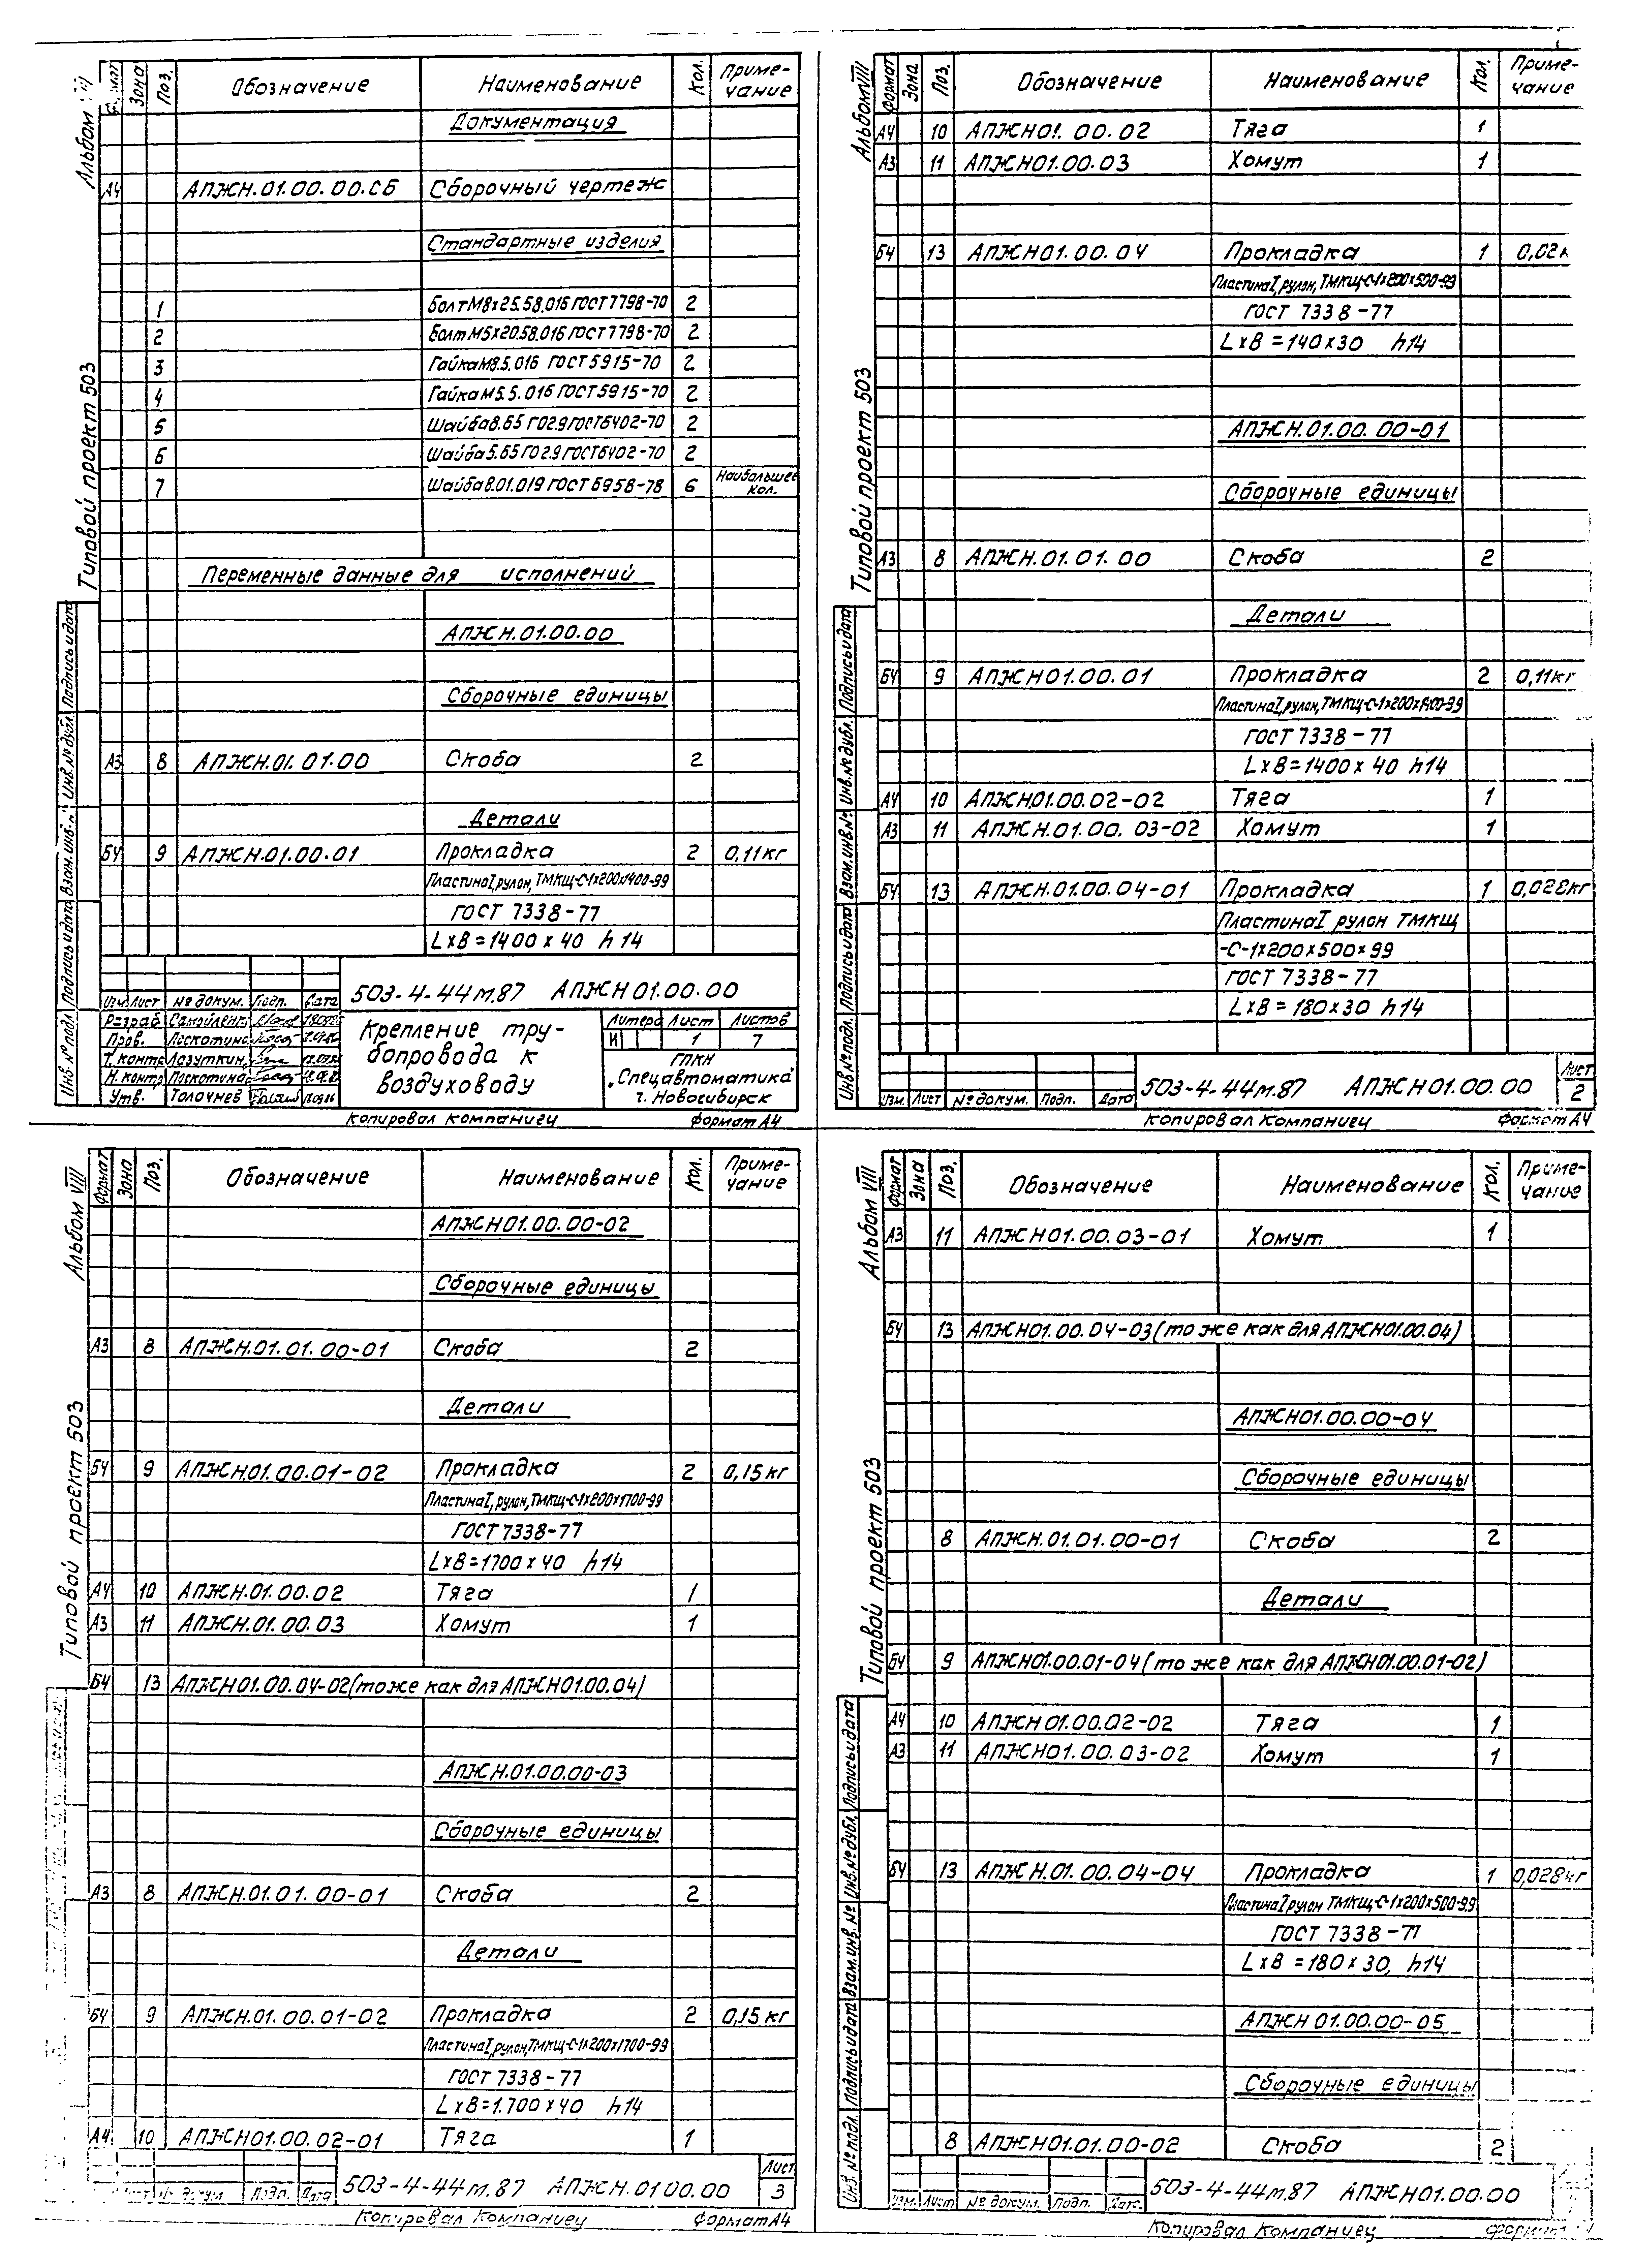 Альбом
Типовой проект 503
Зона Поз. Обозначение Наименование Кол. Приме-
чание
Документация
А4 АПЖН.01.00.00.СБ Сборочный чертеж
Стандартные изделия
1 Болт М8х25.58.016 ГОСТ 7798-70 2
2 Болт М5х20.58.016 ГОСТ 7798-70 2
3 Гайка М8.5.016 ГОСТ 5915-70 2
4 Гайка М5.5.016 ГОСТ 5915-70 2
5 Шайба 8.65 Г 02.9 ГОСТ 6402-70 2
6 Шайба 5.65 Г 02.9 ГОСТ 6402-70 2
7 Шайба 8.01.019 ГОСТ 6958-78 6 Наибольшее
кол.
Переменные данные для исполнений
АПЖН.01.00.00
Сборочные единицы
А3 8 АПЖН.01.01.00 Скоба 2
Детали
БЧ 9 АПЖН.01.00.01 Прокладка 2 0,11кг
Пластина I, рулон, ТМКЩ-С-1х200х1400-99
ГОСТ 7338-77
LхВ=1400х40 h14
Инв.№ подл. Подпись и дата Взам.инв.№ Инв.№ дубл. Подпись и дата
Изм. Лист № докум. Подп. Дата
Разраб
Пров. Поскотина
Т. контр Лазуткин
Н. контр Поскотина
Утв. Толочнев
503-4-44м.87 АПЖН 01.00.00
Крепление тру-
бопровода к
воздуховоду
Литера Лист Листов
И 1 7
ГПКИ
"Спецавтоматика"
г. Новосибирск
Копировал Компаниец Формат А4
Альбом VIII
Типовой проект 503
Формат Зона Поз. Обозначение Наименование Кол. Приме-
чание
А4 10 АПЖН01.00.02 Тяга 1
А3 11 АПЖН01.00.03 Хомут 1
БЧ 13 АПЖН01.00.04 Прокладка 1 0,02к
Пластина I, рулон, ТМКЩ-С-1х200х500-99
ГОСТ 7338-77
LхВ=140х30 h14
АПЖН.01.00.00-01
Сборочные единицы
А3 8 АПЖН.01.01.00 Скоба 2
Детали
БЧ 9 АПЖН01.00.01 Прокладка 2 0,11кг
Пластина I, рулон, ТМКЩ-С-1х200х1400-99
ГОСТ 7338-77
LхВ=1400х40 h14
А4 10 АПЖН.01.00.02-02 Тяга 1
А3 11 АПЖН.01.00.03-02 Хомут 1
БЧ 13 АПЖН.01.00.04-01 Прокладка 1 0,028кг
Пластина I рулон ТМКЩ
-С-1х200х500х99
ГОСТ 7338-77
LхВ=180х30 h14
Инв.№ подл. Подпись и дата Взам.инв.№ Инв.№ дубл. Подпись и дата
Изм. Лист № докум. Подп. Дата
503-4-44м.87 АПЖН01.00.00
Лист
2
Копировал Компаниец Формат А4
Альбом VIII
Типовой проект 503
Формат Зона Поз. Обозначение Наименование Кол. Приме-
чание
АПЖН01.00.00-02
Сборочные единицы
А3 8 АПЖН.01.01.00-01 Скоба 2
Детали
БЧ 9 АПЖН.01.00.01-02 Прокладка 2 0,15кг
Пластина I, рулон, ТМКЩ-С-1х200х1700-99
ГОСТ 7338-77
LхВ=1700х40 h14
А4 10 АПЖН.01.00.02 Тяга 1
А3 11 АПЖН.01.00.03 Хомут 1
БЧ 13 АПЖН01.00.04-02(то же как для АПЖН01.00.04)
АПЖН.01.00.00-03
Сборочные единицы
А3 8 АПЖН.01.01.00-01 Скоба 2
Детали
БЧ 9 АПЖН.01.00.01-02 Прокладка 2 0,15кг
Пластина I, рулон, ТМКЩ-С-1х200х1700-99
ГОСТ 7338-77
LхВ=1.700х40 h14
А4 10 АПЖН01.00.02-01 Тяга 1
Лист № докум. Подп. Дата
503-4-44м.87 АПЖН.0100.00
Лист
3
Копировал Компаниец Формат А4
Альбом VIII
Типовой проект 503
Формат Зона Поз. Обозначение Наименование Кол. Приме-
чание
А3 11 АПЖН01.00.03-01 Хомут 1
БЧ 13 АПЖН01.00.04-03(то же как для АПЖН01.00.04)
АПЖН01.00.00-04
Сборочные единицы
8 АПЖН.01.01.00-01 Скоба 2
Детали
БЧ 9 АПЖН01.00.01-04(то же как для АПЖН01.00.01-02)
А4 10 АПЖН01.00.02-02 Тяга 1
А3 11 АПЖН01.00.03-02 Хомут 1
БЧ 13 АПЖН.01.00.04-04 Прокладка 1 0,028кг
Пластина I рулон ТМКЩ-С-1х200х500-99
ГОСТ 7338-77
LхВ=180х30, h14
АПЖН 01.00.00-05
Сборочные единицы
8 АПЖН01.01.00-02 Скоба 2
Инв.№ подл. Подпись и дата Взам.инв.№ Инв.№ дубл. Подпись и дата
Изм. Лист № докум. Подп. Дата
503-4-44м.87 АПЖН01.00.00
Копировал Компаниец